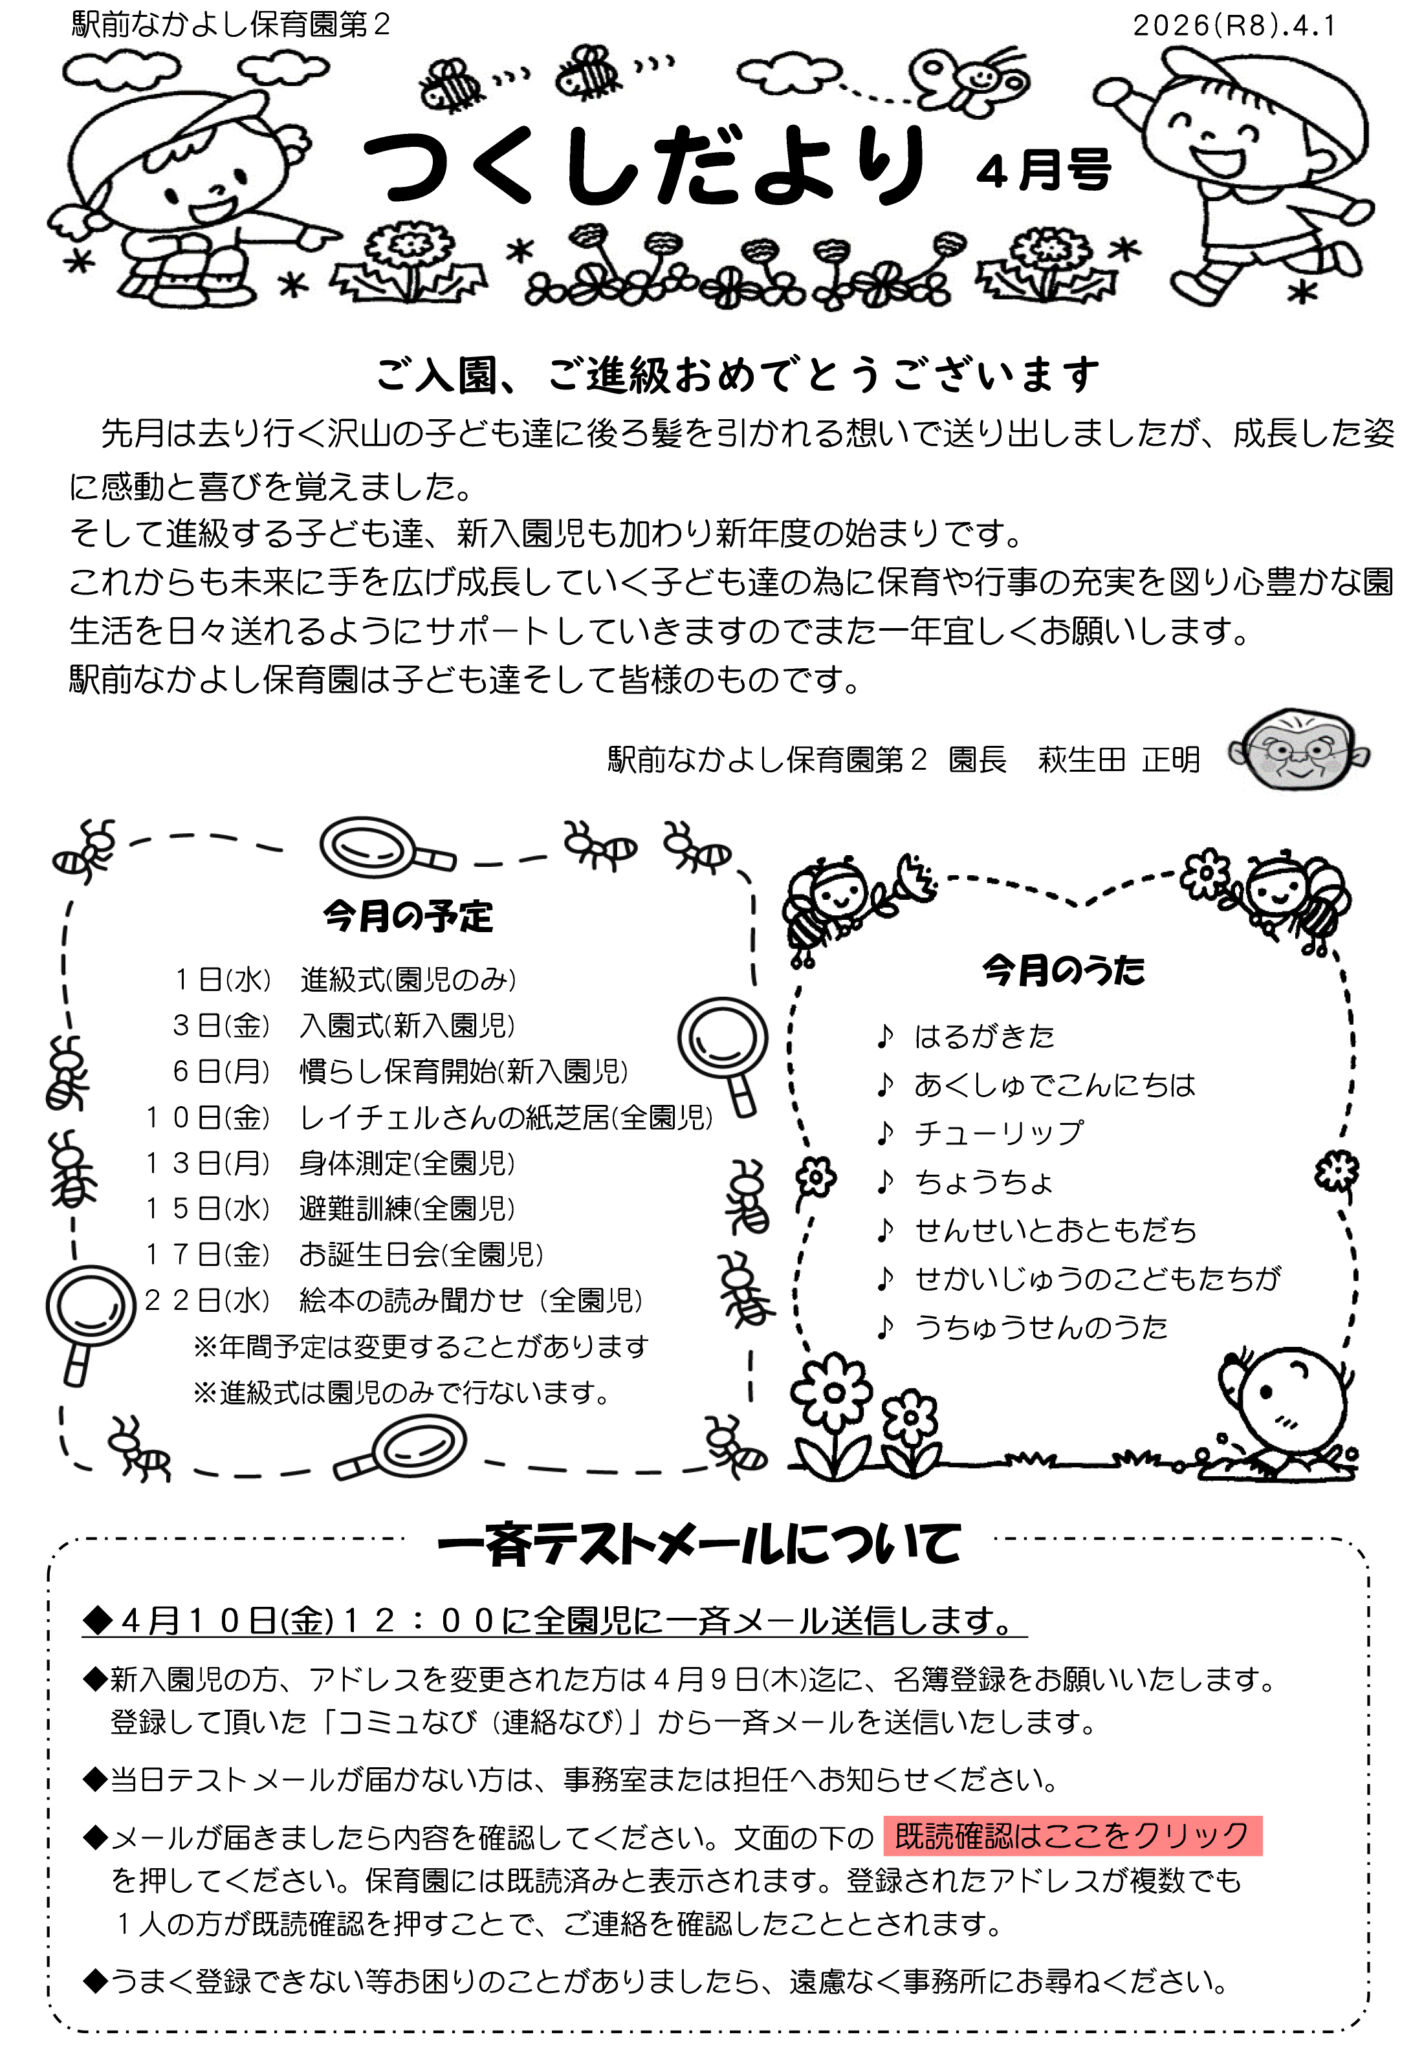 駅前なかよし保育園第２
2026(R8).4.1
つくしだより ４月号
ご入園、ご進級おめでとうございます
先月は去り行く沢山の子ども達に後ろ髪を引かれる想いで送り出しましたが、成長した姿
に感動と喜びを覚えました。
そして進級する子ども達、新入園児も加わり新年度の始まりです。
これからも未来に手を広げ成長していく子ども達の為に保育や行事の充実を図り心豊かな園
生活を日々送れるようにサポートしていきますのでまた一年宜しくお願いします。
駅前なかよし保育園は子ども達そして皆様のものです。
駅前なかよし保育園第２ 園長　萩生田 正明
今月の予定
１日(水)　進級式(園児のみ)
３日(金)　入園式(新入園児)
６日(月)　慣らし保育開始(新入園児)
１０日(金)　レイチェルさんの紙芝居(全園児)
１３日(月)　身体測定(全園児)
１５日(水)　避難訓練(全園児)
１７日(金)　お誕生日会(全園児)
２２日(水)　絵本の読み聞かせ (全園児)
※年間予定は変更することがあります
※進級式は園児のみで行ないます。
今月のうた
♪ はるがきた
♪ あくしゅでこんにちは
♪ チューリップ
♪ ちょうちょ
♪ せんせいとおともだち
♪ せかいじゅうのこどもたちが
♪ うちゅうせんのうた
一斉テストメールについて
◆４月１０日(金)１２：００に全園児に一斉メール送信します。
◆新入園児の方、アドレスを変更された方は４月９日(木)迄に、名簿登録をお願いいたします。
登録して頂いた「コミュなび (連絡なび)」から一斉メールを送信いたします。
◆当日テストメールが届かない方は、事務室または担任へお知らせください。
◆メールが届きましたら内容を確認してください。文面の下の 既読確認はここをクリック
を押してください。保育園には既読済みと表示されます。登録されたアドレスが複数でも
１人の方が既読確認を押すことで、ご連絡を確認したこととされます。
◆うまく登録できない等お困りのことがありましたら、遠慮なく事務所にお尋ねください。